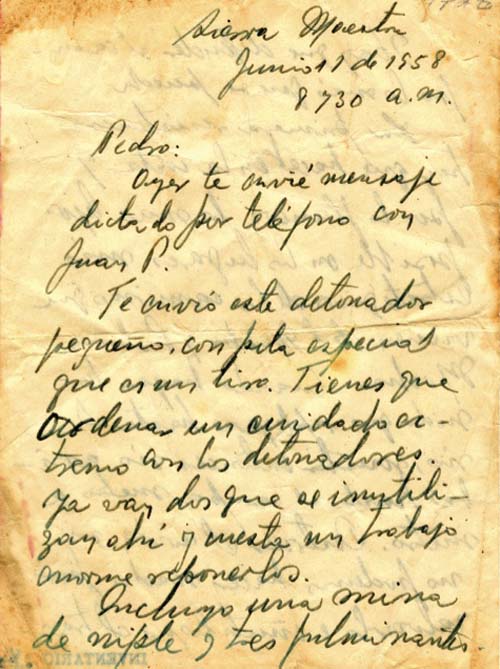 Sierra Maestra
Junio 11 de 1958
8 y 30 a.m.
Pedro:
Ayer te envié mensaje
dictado por teléfono con
Juan P.
Te envio este detonador
pequeño, con pila especial
que es un tiro. Tienes que
ordenar un cuidado ex-
tremo con los detonadores.
Ya van dos que se inutili-
zan ahí y cuesta un trabajo
enorme reponerlos.
Incluyo una mina
de niple y tres fulminantes.
INVENTARIO